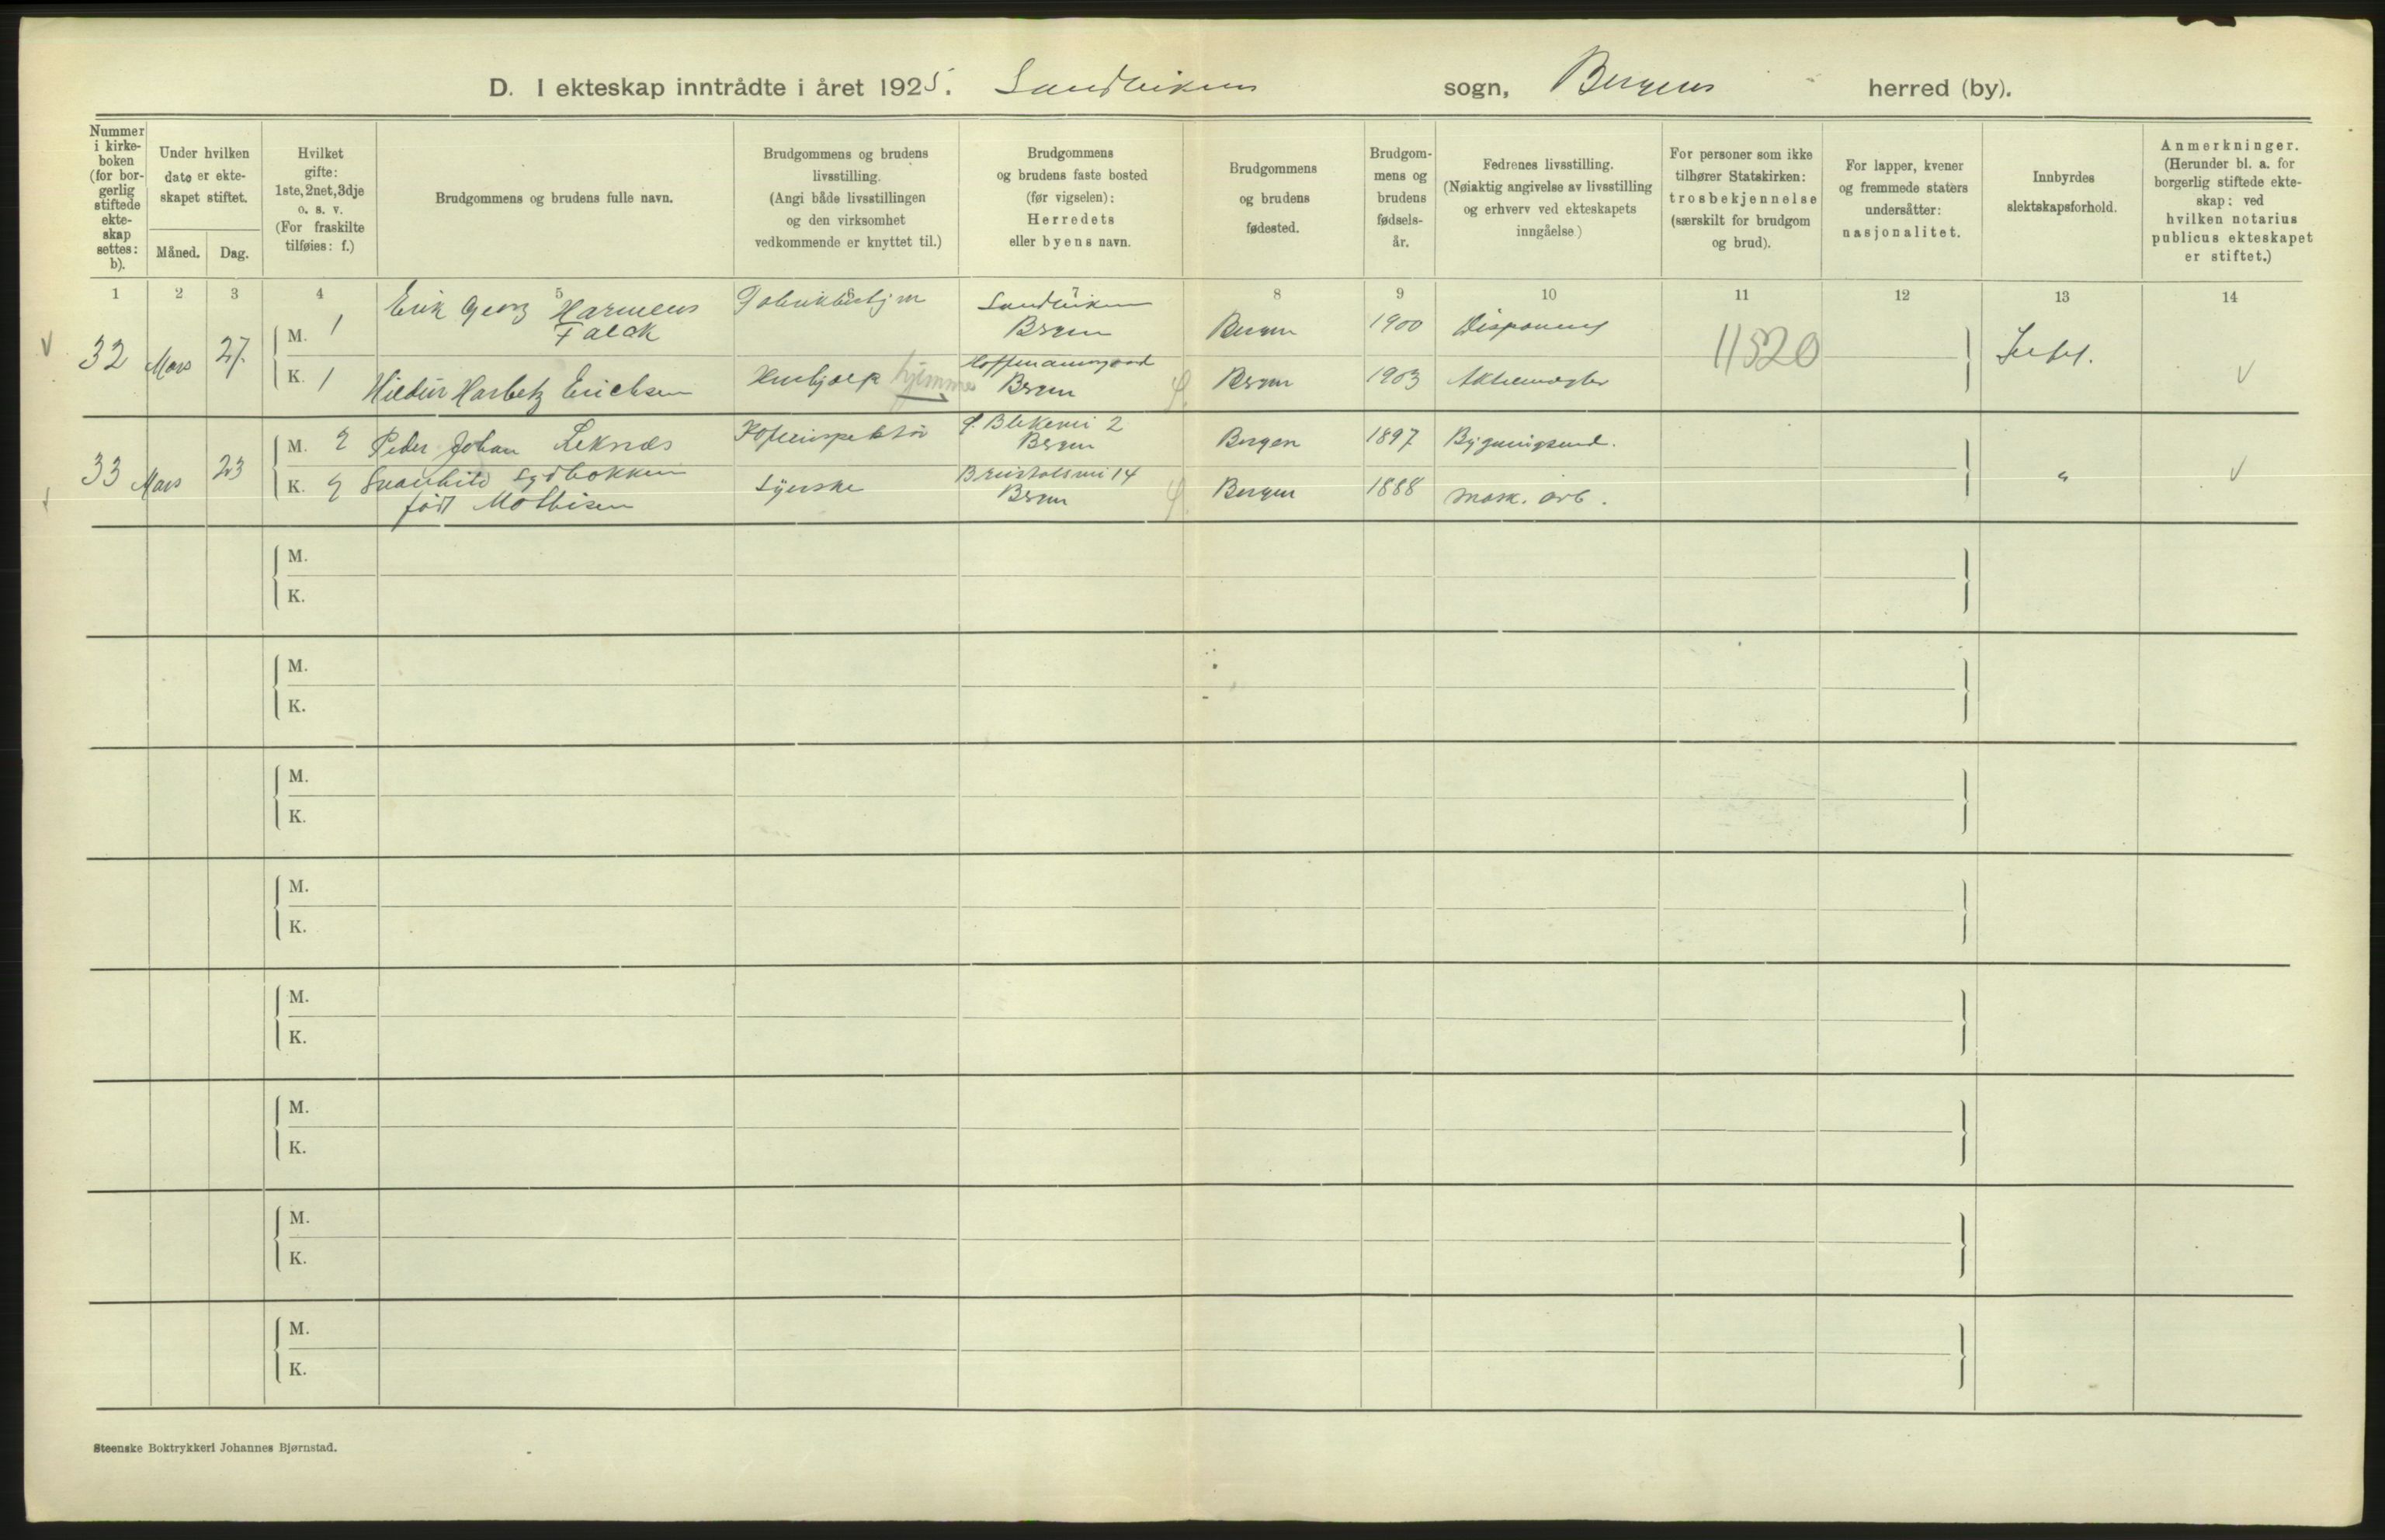 D. I ekteskap inntrådte i året 1925. Sandviken sogn, Bergens herred (by).
Nummer i kirke-boken (for bor-gerlig stiftede ekte-skap settes: b).
Under hvilken dato er ekte-skapet stiftet.
Måned. Dag.
Hvilket gifte: 1ste, 2net, 3dje o. s. v. (For fraskilte tilføies: f.)
Brudgommens og brudens fulle navn.
Brudgommens og brudens livsstilling. (Angi både livsstillingen og den virksomhet vedkommende er knyttet til.)
Brudgommens og brudens faste bosted (før vigselen): Herredets eller byens navn.
Brudgommens og brudens fødested.
Brudgom-mens og brudens fødsels-år.
Fedrenes livsstilling. (Nøiaktig angivelse av livsstilling og erhverv ved ekteskapets inngåelse)
For personer som ikke tilhører Statskirken: trosbekjennelse (særskilt for brudgom og brud).
For lapper, kvener og fremmede staters undersåtter: nasjonalitet.
Innbyrdes slektskapsforhold.
Anmerkninger. (Herunder bl. a. for borgerlig stiftede ekte-skap: ved hvilken notarius publicus ekteskapet er stiftet.)
1 2 3 4 5 6 7 8 9 10 11 12 13 14
32 Mars 27.
M. 1 Erik Georg Harmens Falck
Sandviken Bergen Bergen 1900 Disponent
11520
K. 1 Hildur Harbitz Erichsen Hushjælp hjemme
Bergen Bergen 1903 Aktiemægler
33 Mars 23
M. 2 Peder Johan Leknæs
Blekevei 2 Bergen Bergen 1897
K. 2 Svanhild
født Mathisen Syerske
14 Bergen Bergen 1888 Mask. arb. "
M.
K.
M.
K.
M.
K.
M.
K.
M.
K.
M.
K.
M.
K.
M.
K.
Steenske Boktrykkeri Johannes Bjørnstad.